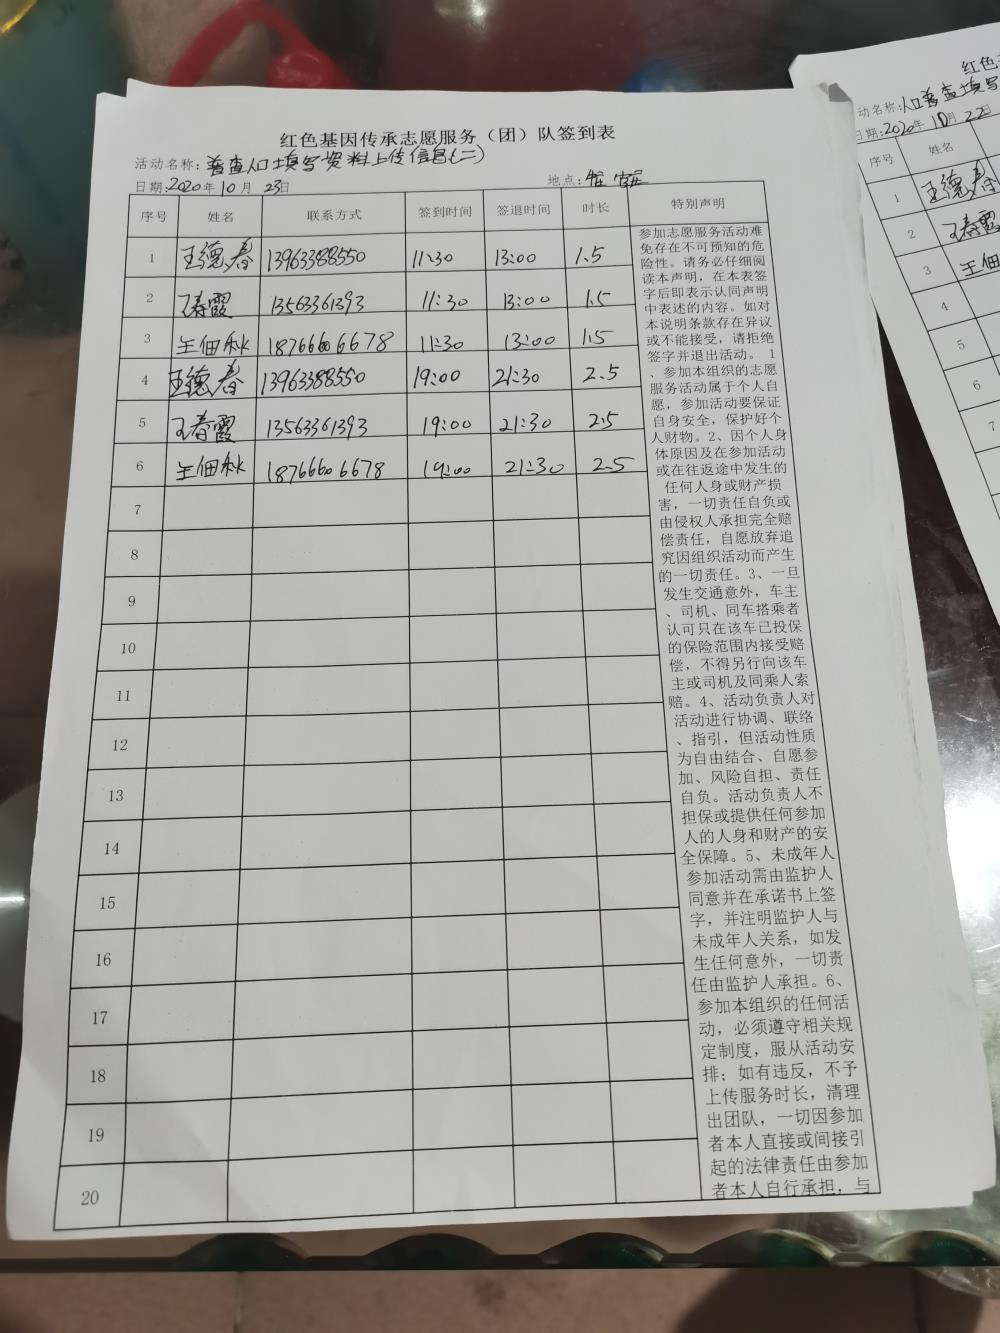 红色基因传承志愿服务（团）队签到表
活动名称：普查人口填写资料上传信息(二)
日期：2020年10月23日 地点：
序号 姓名 联系方式 签到时间 签退时间 时长 特别声明
1 王德春 13963388550 11:30 13:00 1.5
2 王春霞 13563361393 11:30 13:00 1.5
3 王佃秋 18766606678 11:30 13:00 1.5
4 王德春 13963388550 19:00 21:30 2.5
5 王春霞 13563361393 19:00 21:30 2.5
6 王佃秋 18766606678 19:00 21:30 2.5
7
8
9
10
11
12
13
14
15
16
17
18
19
20
参加志愿服务活动难
免存在不可预知的危
险性。请务必仔细阅
读本声明，在本表签
字后即表示认同声明
中表述的内容。如对
本说明条款存在异议
或不能接受，请拒绝
签字并退出活动。 1
、参加本组织的志愿
服务活动属于个人自
愿，参加活动要保证
自身安全，保护好个
人财物。2、因个人身
体原因及在参加活动
或在往返途中发生的
任何人身或财产损
害，一切责任自负或
由侵权人承担完全赔
偿责任，自愿放弃追
究因组织活动而产生
的一切责任。3、一旦
发生交通意外，车主
、司机、同车搭乘者
认可只在该车已投保
的保险范围内接受赔
偿，不得另行向该车
主或司机及同乘人索
赔。4、活动负责人对
活动进行协调、联络
、指引，但活动性质
为自由结合、自愿参
加、风险自担、责任
自负。活动负责人不
担保或提供任何参加
人的人身和财产的安
全保障。5、未成年人
参加活动需由监护人
同意并在承诺书上签
字，并注明监护人与
未成年人关系，如发
生任何意外，一切责
任由监护人承担。6、
参加本组织的任何活
动，必须遵守相关规
定制度，服从活动安
排；如有违反，不予
上传服务时长，清理
出团队，一切因参加
者本人直接或间接引
起的法律责任由参加
者本人自行承担，与
红色
动名称：人口普查填写
日期：2020年10月22日
序号 姓名
1 王德春
2 王春霞
3 王佃
4
5
6
7